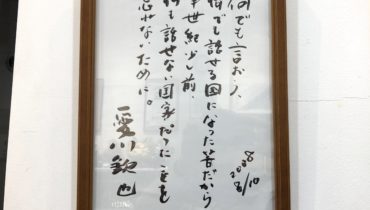 何でも言おう、
何でも話せる国になった筈だから
半世紀少し前、
何も話せない国家だった事を
忘れないために。
愛川欽也
2008
8/10